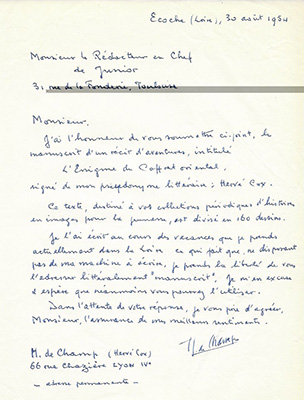 Ecoche (Loire), 30 août 1954
Monsieur le Rédacteur en Chef
de Junior
31, rue de la Fonderie, Toulouse
Monsieur,
J'ai l'honneur de vous soumettre ci-joint, le
manuscrit d'un récit d'aventures, intitulé
L'Énigme du Coffret oriental,
signé de mon pseudonyme littéraire : Hervé Cox.
Ce texte, destiné à vos collections périodiques d'histoires
en images pour la jeunesse, est divisé en 160 dessins.
Je l'ai écrit au cours des vacances que je prends
actuellement dans la Loire ce qui fait que, ne disposant
pas de ma machine à écrire, je prends la liberté de vous
l'adresser littéralement "manuscrit". Je m'en excuse
& espère que néanmoins vous pourrez l'utiliser.
Dans l'attente de votre réponse, je vous prie d'agréer,
Monsieur, l'assurance de mes meilleurs sentiments.
M. de Champ (Hervé Cox)
66 rue Chazière LYON IVe
- adresse permanente -